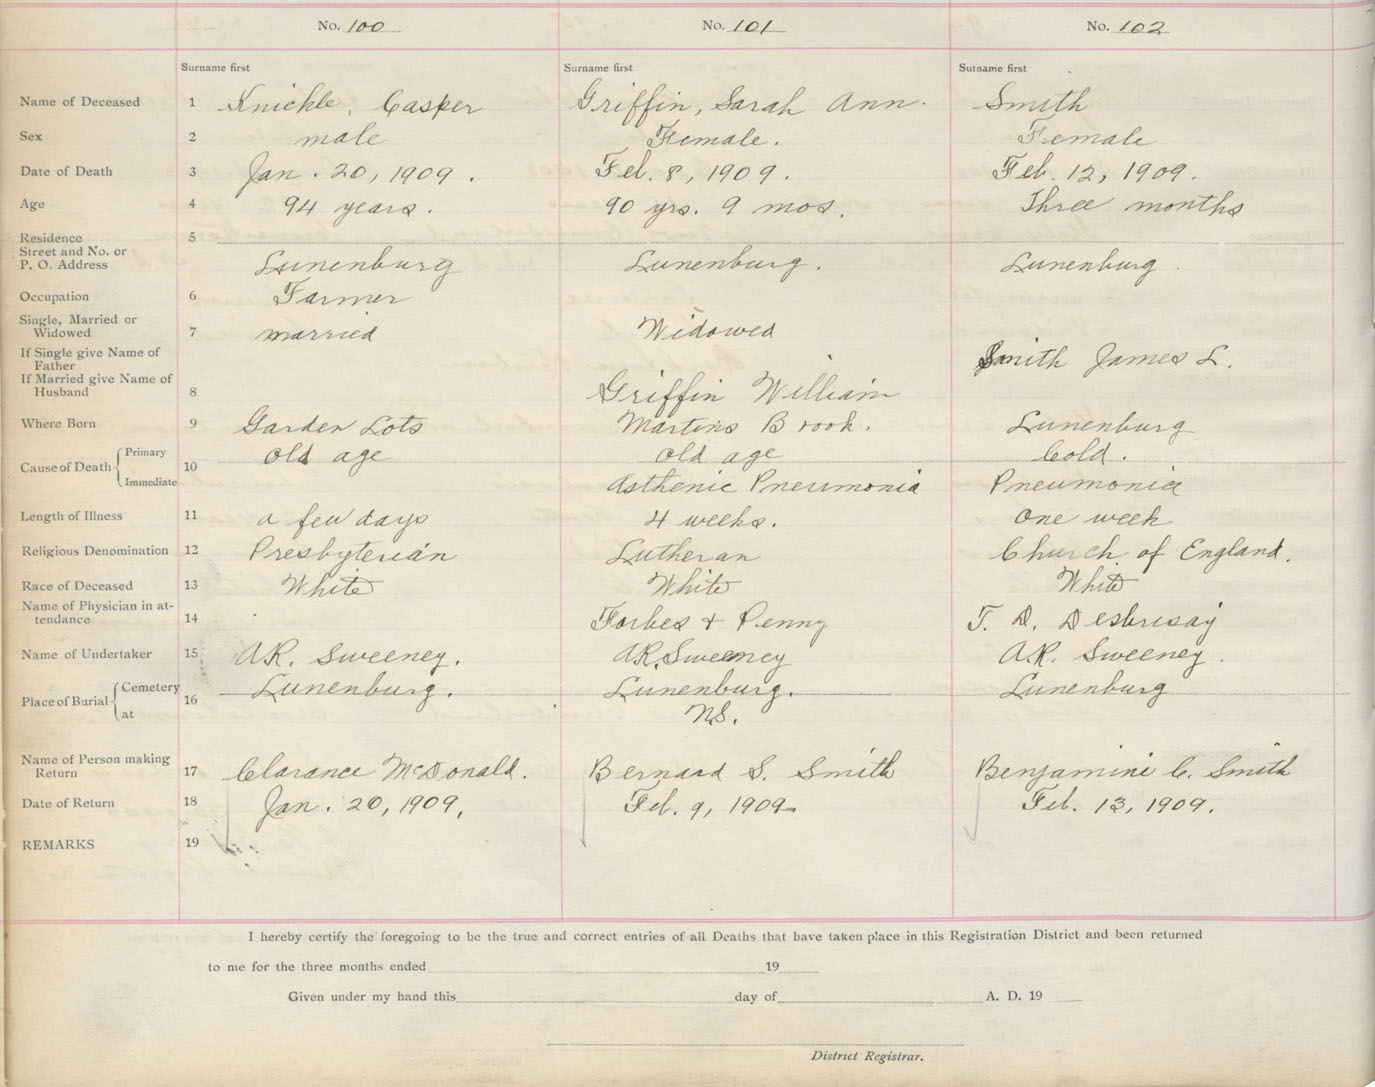 No. 100 No. 101 No. 102
Surname first Surname first Surname first
Name of Deceased 1 Knickle, Casper Griffin, Sarah Ann. Smith
Sex 2 male Female. Female
Date of Death 3 Jan. 20, 1909. Feb. 8, 1909. Feb. 12, 1909.
Age 4 94 years. 90 yrs. 9 mos. Three months
Residence 5
Street and No. or
P. O. Address Lunenburg Lunenburg. Lunenburg.
Occupation 6 Farmer
Single, Married or
Widowed 7 married Widowed
If Single give Name of
Father Smith James L.
If Married give Name of
Husband 8 Griffin William
Where Born 9 Garden Lots Martins Brook. Lunenburg
Cause of Death Primary 10 old age old age Cold.
Immediate Asthenic Pneumonia Pneumonia
Length of Illness 11 a few days 4 weeks. one week
Religious Denomination 12 Presbyterian Lutheran Church of England.
Race of Deceased 13 White White White
Name of Physician in at-
tendance 14 Forbes + Penny T. D. Desbrisay
Name of Undertaker 15 A.R. Sweeney. A.R. Sweeney A.R. Sweeney.
Place of Burial Cemetery 16 Lunenburg. Lunenburg. Lunenburg
at N.S.
Name of Person making
Return 17 Clarance McDonald. Bernard S. Smith Benjamine C. Smith
Date of Return 18 Jan. 20, 1909, Feb. 9, 1909 Feb. 13, 1909.
REMARKS 19
I hereby certify the foregoing to be the true and correct entries of all Deaths that have taken place in this Registration District and been returned
to me for the three months ended 19
Given under my hand this day of A. D. 19
District Registrar.